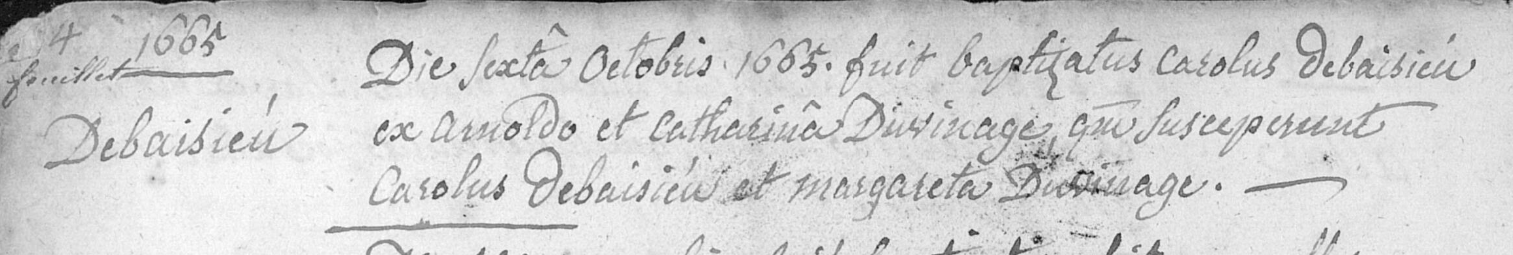 4 1665
feuillet
Debaisiéu
Die sextâ Octobris 1665. fuit baptizatus Carolus Debaisiéu
ex Arnoldo et Catharinâ Duvinage, quē susceperunt
Carolus Debaisiéu et Margareta Duvinage.